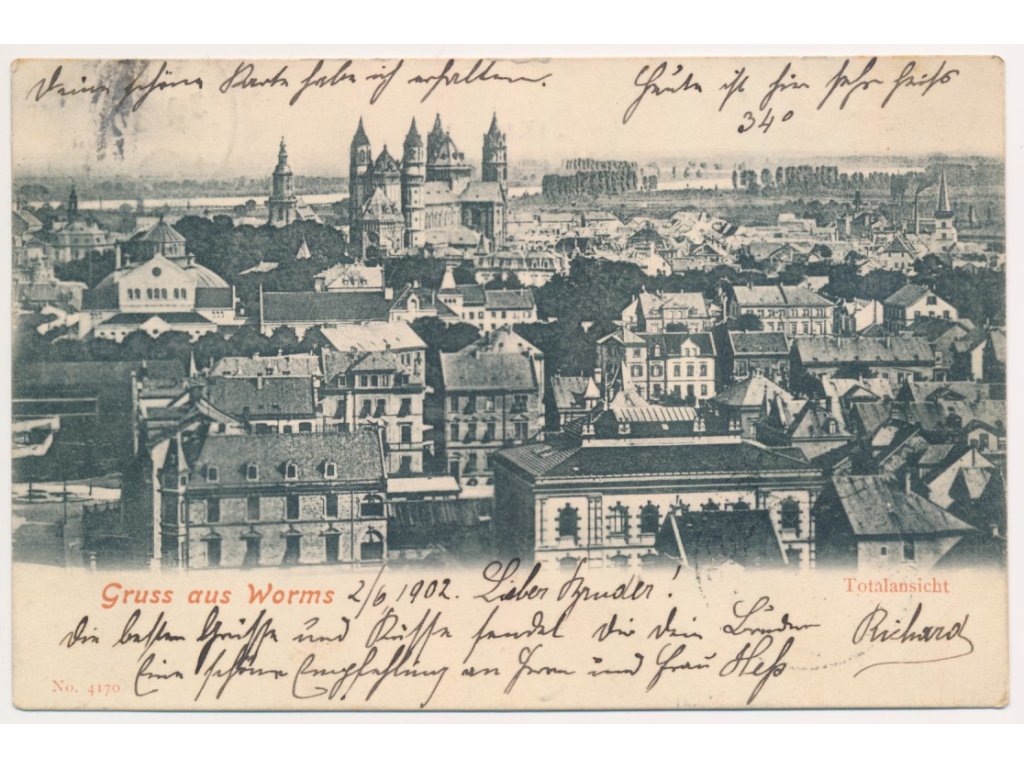 Deine schöne Karte habe ich erhalten.
Heute ist hier sehr heiss
34°
Gruss aus Worms 2/6 1902. Lieber Bruder!
Totalansicht
Die besten Grüsse und Küsse sendet dir dein Bruder Richard
Eine schöne Empfehlung an Herrn und Frau Heß
No. 4170